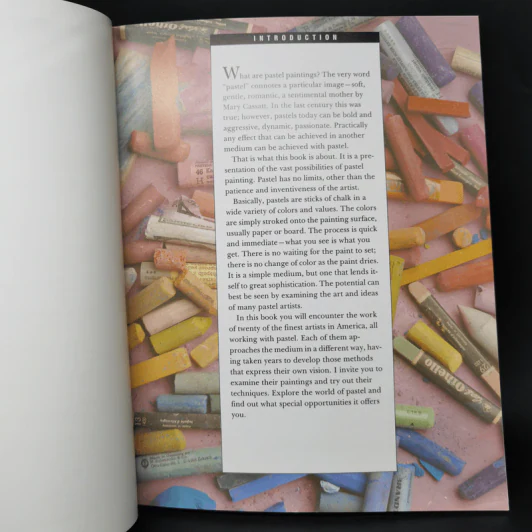 INTRODUCTION
What are pastel paintings? The very word
"pastel" connotes a particular image—soft,
gentle, romantic, a sentimental mother by
Mary Cassatt. In the last century this was
true; however, pastels today can be bold and
aggressive, dynamic, passionate. Practically
any effect that can be achieved in another
medium can be achieved with pastel.
That is what this book is about. It is a pre-
sentation of the vast possibilities of pastel
painting. Pastel has no limits, other than the
patience and inventiveness of the artist.
Basically, pastels are sticks of chalk in a
wide variety of colors and values. The colors
are simply stroked onto the painting surface,
usually paper or board. The process is quick
and immediate—what you see is what you
get. There is no waiting for the paint to set;
there is no change of color as the paint dries.
It is a simple medium, but one that lends it-
self to great sophistication. The potential can
best be seen by examining the art and ideas
of many pastel artists.
In this book you will encounter the work
of twenty of the finest artists in America, all
working with pastel. Each of them ap-
proaches the medium in a different way, hav-
ing taken years to develop those methods
that express their own vision. I invite you to
examine their paintings and try out their
techniques. Explore the world of pastel and
find out what special opportunities it offers
you.